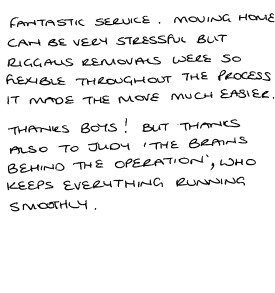 FANTASTIC SERVICE. MOVING HOME
CAN BE VERY STRESSFUL BUT
RIGGALLS REMOVALS WERE SO
FLEXIBLE THROUGHOUT THE PROCESS
IT MADE THE MOVE MUCH EASIER.
THANKS BOYS! BUT THANKS
ALSO TO JUDY 'THE BRAINS
BEHIND THE OPERATION', WHO
KEEPS EVERYTHING RUNNING
SMOOTHLY.